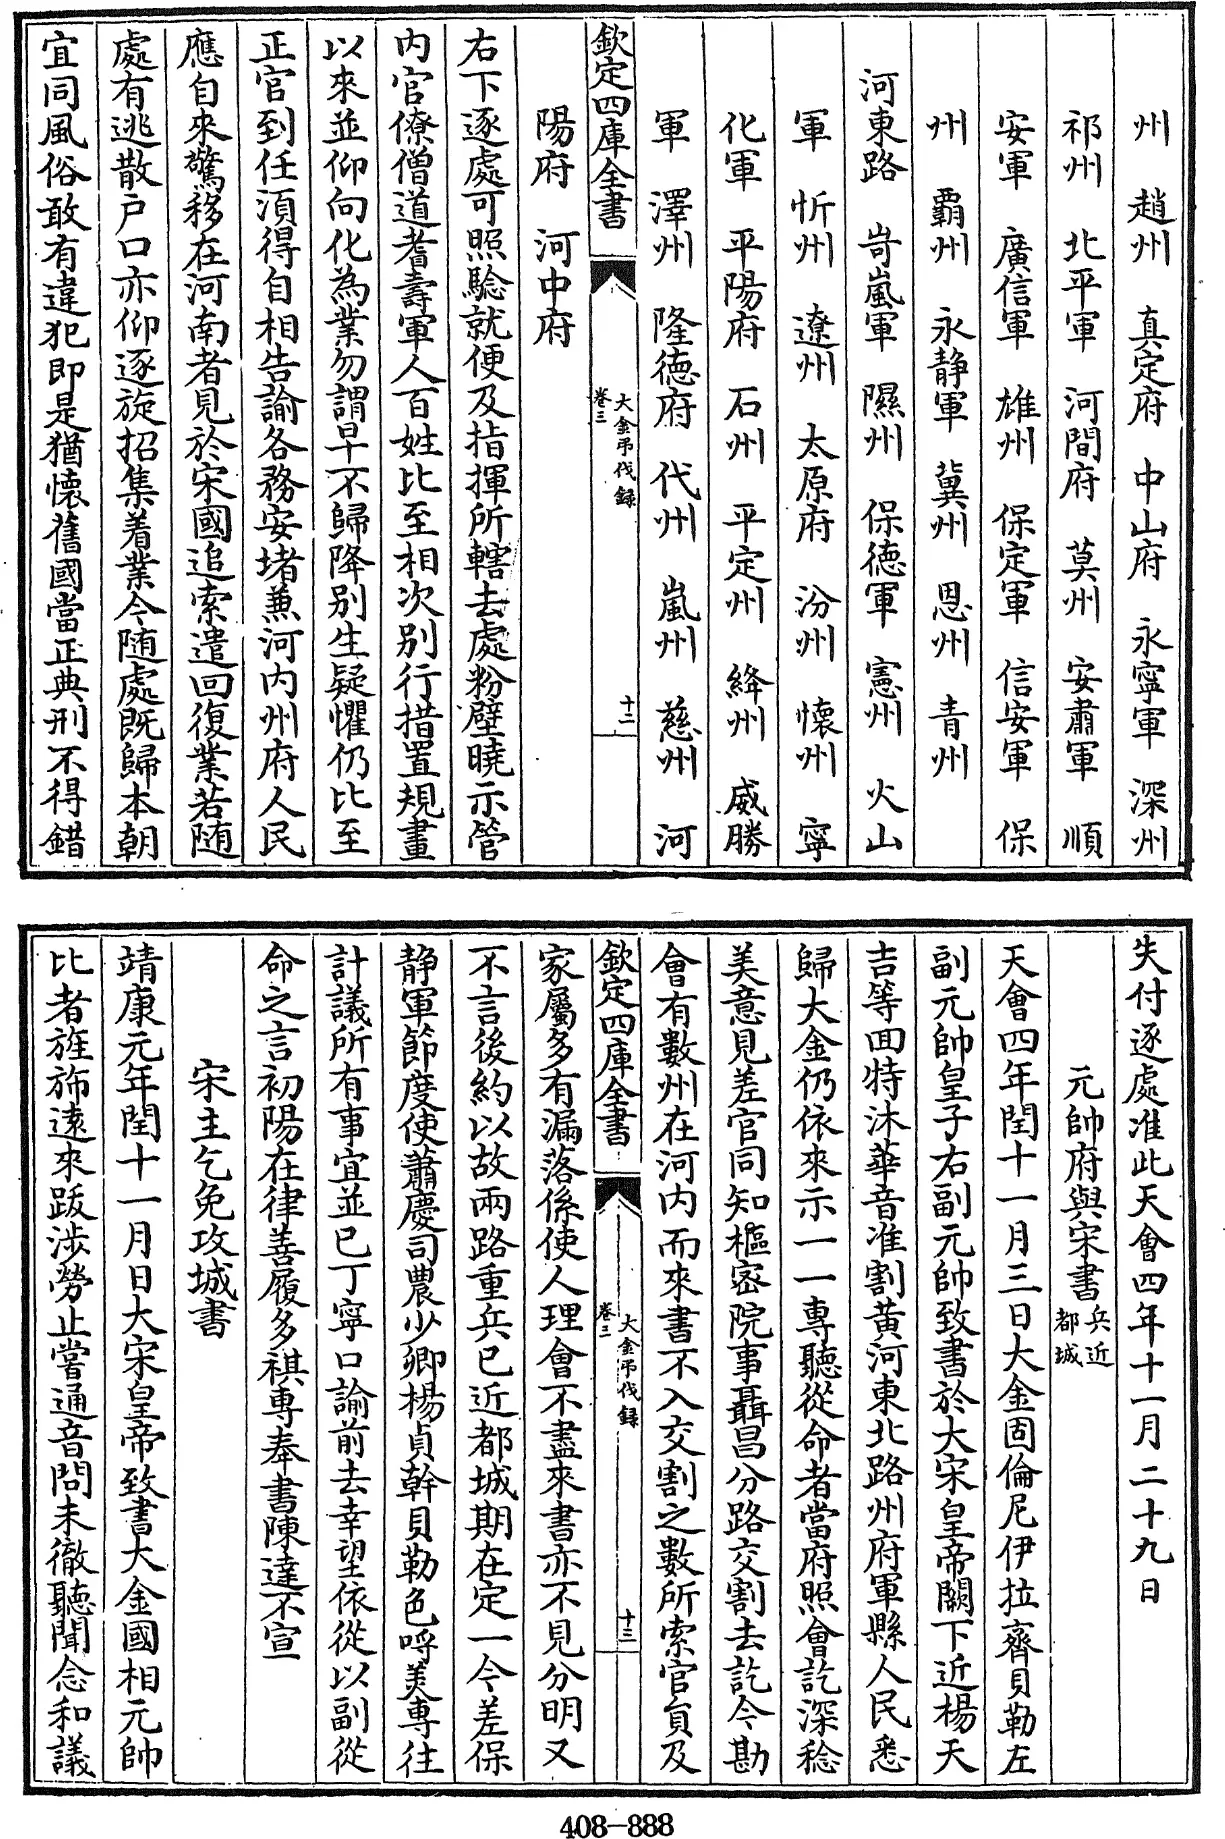 州　趙州　真定府　中山府　永寧軍　深州
祁州　北平軍　河間府　莫州　安肅軍　順
安軍　廣信軍　雄州　保定軍　信安軍　保
州　霸州　永静軍　冀州　恩州　青州
河東路　岢嵐軍　隰州　保徳軍　憲州　火山
軍　忻州　遼州　太原府　汾州　懐州　寧
化軍　平陽府　石州　平定州　絳州　威勝
軍　澤州　隆徳府　代州　嵐州　慈州　河
欽定四庫全書　大金弔伐録
卷三　十二
陽府　河中府
右下逐處可照驗就便及指揮所轄去處粉壁曉示管
内官僚僧道耆壽軍人百姓比至相次别行措置規畫
以來並仰向化為業勿謂早不歸降别生疑懼仍比至
正官到任湏得自相告諭各務安堵兼河内州府人民
應自來驚移在河南者見於宋國追索遣回復業若随
處有逃散户口亦仰逐旋招集着業今随處既歸本朝
宜同風俗敢有違犯即是猶懷舊國當正典刑不得錯
失付逐處准此天會四年十一月二十九日
元帥府與宋書兵近都城
天會四年閏十一月三日大金固倫尼伊拉齊貝勒左
副元帥皇子右副元帥致書於大宋皇帝闕下近楊天
吉等囬特沐華音准割黄河東北路州府軍縣人民悉
歸大金仍依來示一一專聽從命者當府照會訖深稔
美意見差官同知樞宻院事聶昌分路交割去訖今勘
會有數州在河内而來書不入交割之數所索官員及
欽定四庫全書　大金弔伐録
卷三　十三
家屬多有漏落係使人理會不盡來書亦不見分明又
不言後約以故兩路重兵已近都城期在定一今差保
静軍節度使蕭慶司農少卿楊貞幹貝勒色哷美專往
計議所有事宜並已丁寧口諭前去幸望依從以副從
命之言初陽在律善履多祺專奉書陳達不宣
宋主乞免攻城書
靖康元年閏十一月日大宋皇帝致書大金國相元帥
比者旌斾逺來跋涉勞止嘗通音問未徹聽聞念和議
408—888